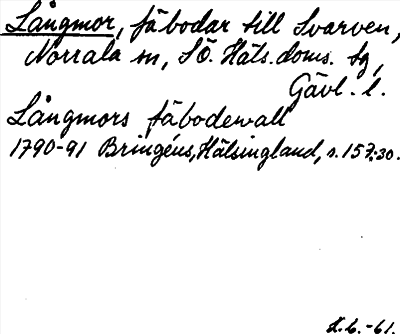 Långmor, fäbodar till Svarven,
Norrala sn, SÖ. Häls. doms. fg,
Gävl. l.
Långmors fäbodewall
1790-91 Bringéus, Hälsingland, s. 157:30.
K.L.-61.